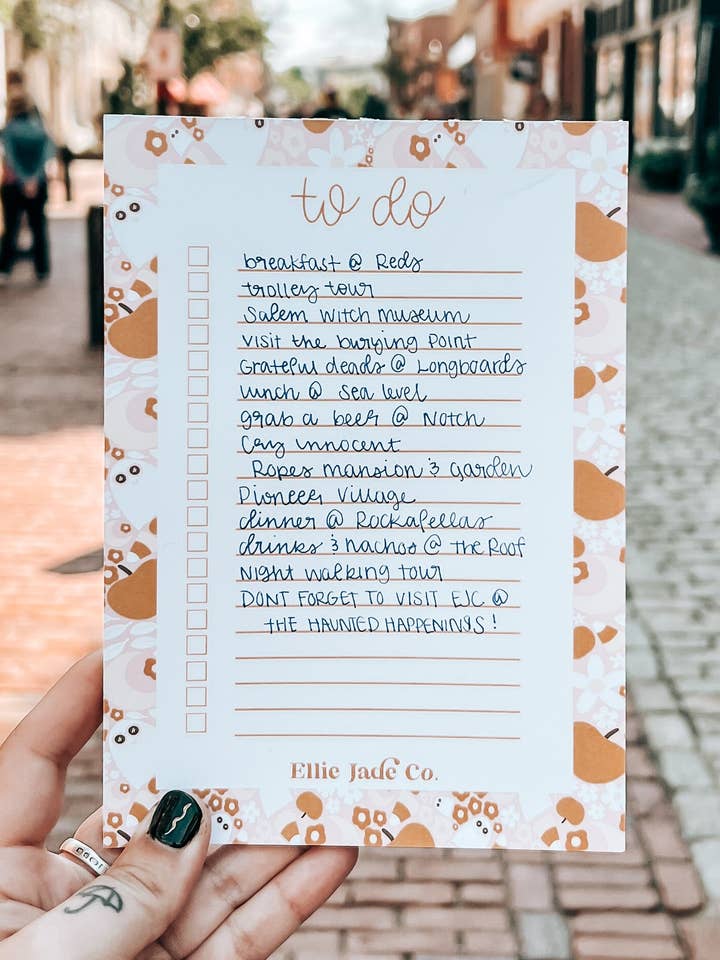 to do
breakfast @ Reds
trolley tour
Salem Witch Museum
Visit the burying Point
Grateful deads @ Longboards
lunch @ Sea level
grab a beer @ Notch
Cry Innocent
Ropes mansion & garden
Pioneer Village
dinner @ Rockafellas
drinks & nachos @ the Roof
Night walking tour
DONT FORGET TO VISIT EJC @
THE HAUNTED HAPPENINGS!
Ellie Jade Co.